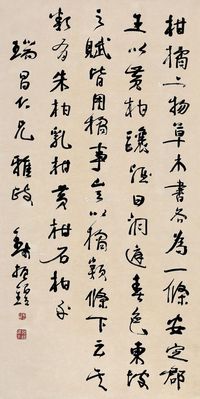 柑橘二物草木書各為一條安定郡
王以黃柑釀酒曰洞庭春色東坡
之賦皆用橘事豈以橘類條下云其
類有朱柑乳柑黃柑石柑乎
瑞昌仁兄雅政 錢振鍠